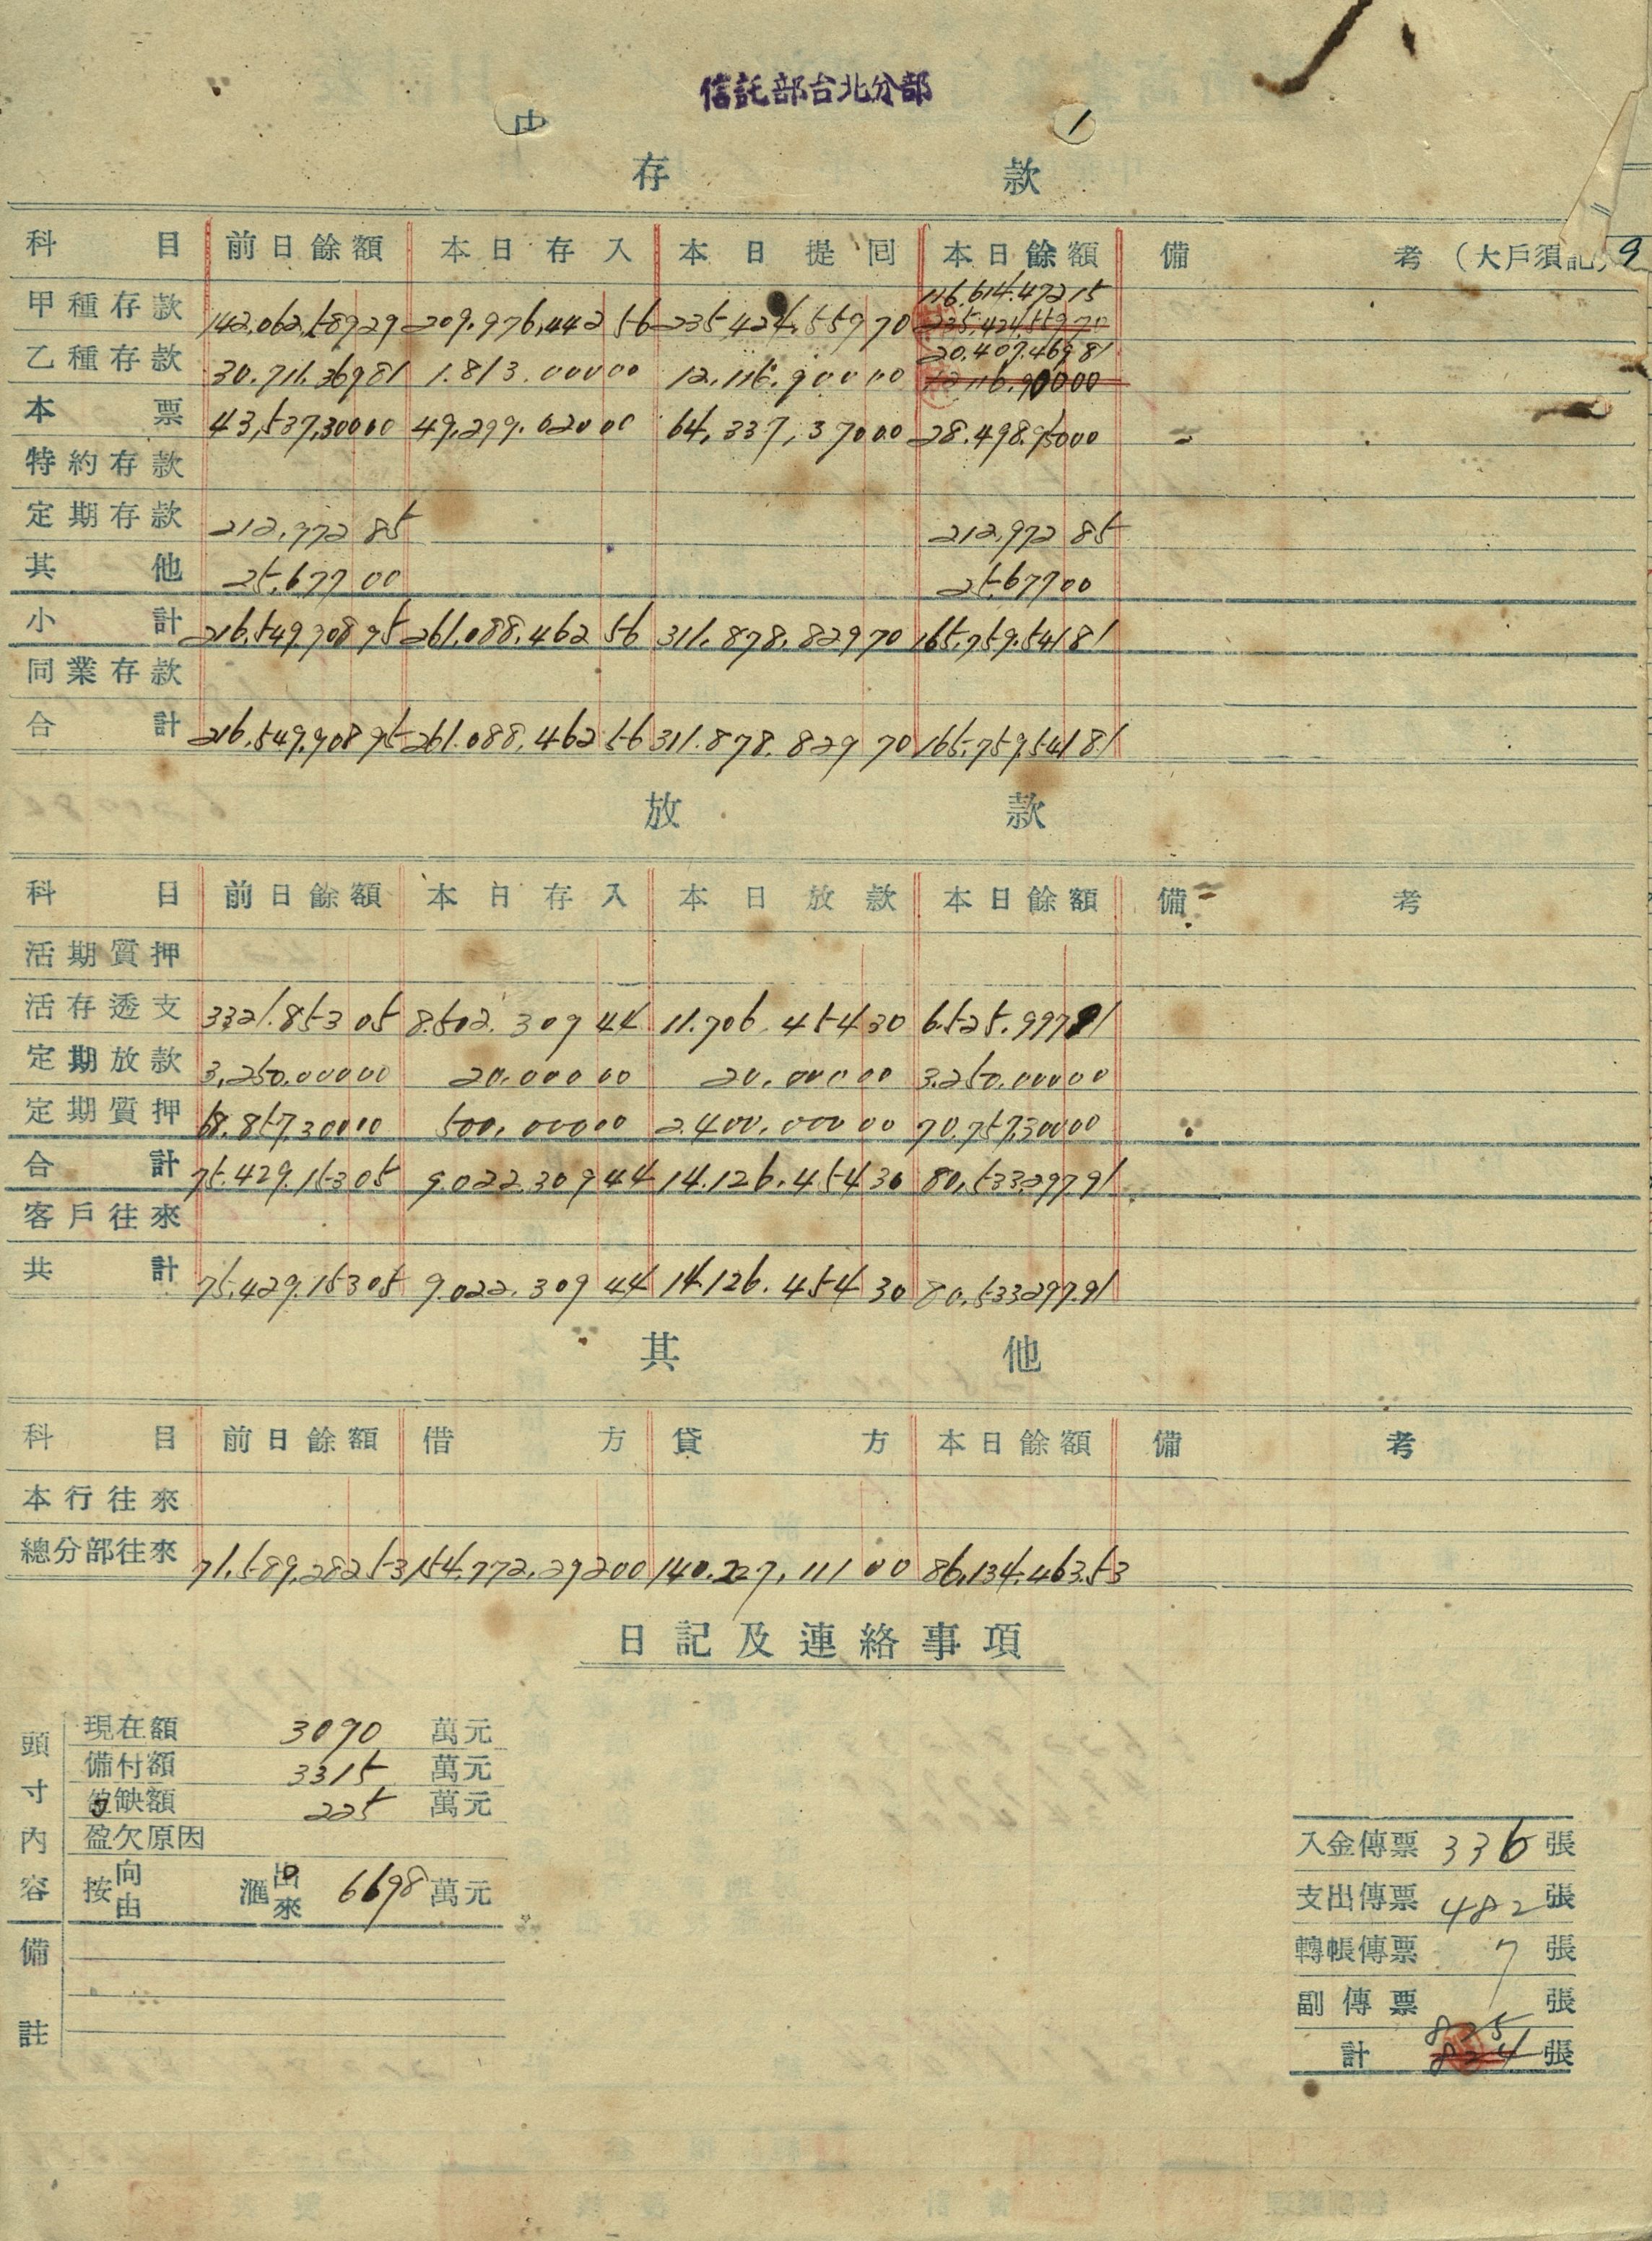 信託部台北分部
中 1
存款
科目 前日餘額 本日存入 本日提回 本日餘額 備考(大戶須記) 9
116.614.472 15
甲種存款 142.062.589 29 209.976,442 56 235,424.559 70 235,424,559 70
20.407.469 81
乙種存款 30.711.369 81 1.813.000 00 12.116.900 00 12 116.900 00
本票 43,537,300 00 49,299.020 00 64,337,370 00 28.498.950 00
特約存款
定期存款 212,972 85 212,972 85
其他 25,677 00 25,677 00
小計 216,549,908 95 261.088.462 56 311.878.829 70 165,759,541 81
同業存款
合計 216,549,908 95 261.088.462 56 311.878.829 70 165,759,541 81
放款
科目 前日餘額 本日存入 本日放款 本日餘額 備考
活期質押
活存透支 3321.853 05 8.502.309 44 11.706.454 30 6.525.997 91
定期放款 3,250.000 00 20.000 00 20.000 00 3.250.000 00
定期質押 68.857,300 00 500.000 00 2.400.000 00 70.757,300 00
合計 75.429.153 05 9.022.309 44 14.126.454 30 80,533,297.91
客戶往來
共計 75.429.153 05 9.022.309 44 14.126.454 30 80,533297.91
其他
科目 前日餘額 借方 貸方 本日餘額 備考
本行往來
總分部往來 71,589,282 53 154,772,292 00 140.227,111 00 86,134,463.53
日記及連絡事項
頭寸內容
現在額 3090 萬元
備付額 3315 萬元
盈缺額 225 萬元
盈欠原因
按向由 滙出來 6698 萬元
備註
入金傳票 336 張
支出傳票 482 張
轉帳傳票 7 張
副傳票 張
825
計 824 張